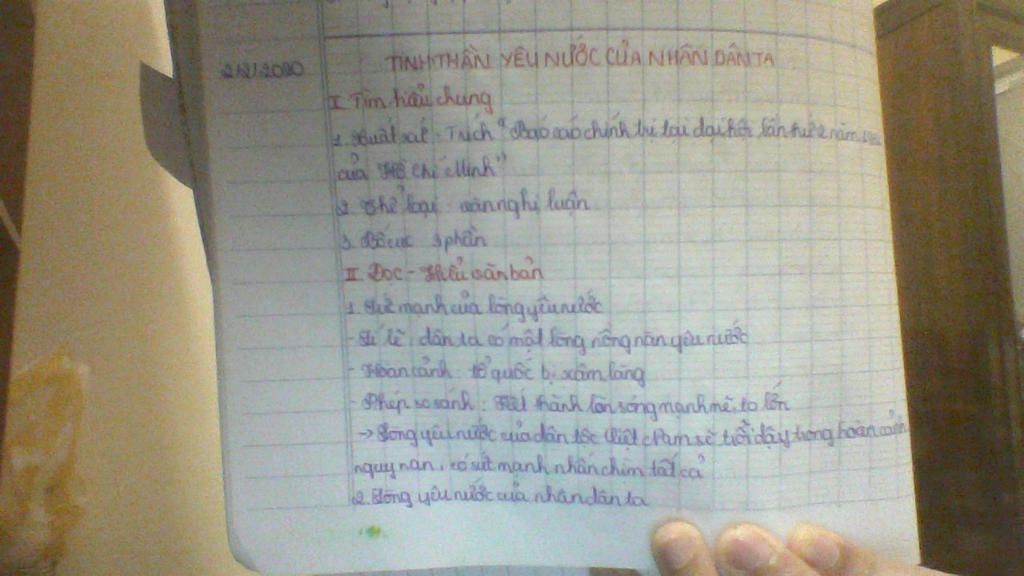 2/2/2020
TINH THẦN YÊU NƯỚC CỦA NHÂN DÂN TA
I Tìm hiểu chung
1. Xuất xứ: Trích "Báo cáo chính trị tại đại hội lần thứ 2 năm
của Hồ Chí Minh"
2. Thể loại: văn nghị luận
3. Bố cục 3 phần
II Đọc - Hiểu văn bản
1. Sức mạnh của lòng yêu nước
- lẽ: dân ta có một lòng nồng nàn yêu nước
- Hoàn cảnh: tổ quốc bị xâm lăng
- Phép so sánh: Kết thành làn sóng mạnh mẽ, to lớn
→ Lòng yêu nước của dân tộc Việt Nam sẽ trỗi dậy trong hoàn cảnh
nguy nan, có sức mạnh nhấn chìm tất cả
2. Lòng yêu nước của nhân dân ta